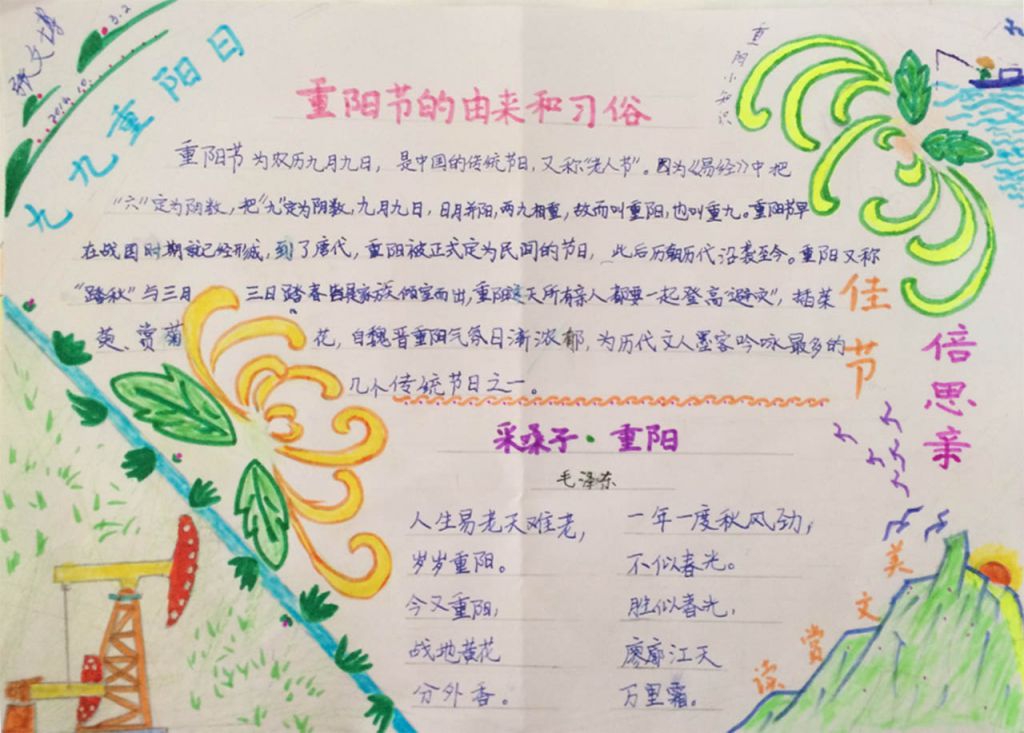 张文博
3.2
九九重阳日
重阳小知识
重阳节的由来和习俗
重阳节为农历九月九日，是中国的传统节日，又称“老人节”。因为《易经》中把
“六”定为阴数，把“九”定为阴数，九月九日，日月并阳，两九相重，故而叫重阳，也叫重九。重阳节早
在战国时期就已经形成，到了唐代，重阳被正式定为民间的节日，此后历朝历代沿袭至今。重阳又称
“踏秋”与三月 三日踏春皆是家族倾室而出，重阳这天所有亲人都要一起登高“避灾”，插茱
萸、赏菊 花，自魏晋重阳气氛日渐浓郁，为历代文人墨客吟咏最多的
几个传统节日之一。
佳节
倍思亲
采桑子·重阳
毛泽东
人生易老天难老，
岁岁重阳。
今又重阳，
战地黄花
分外香。
一年一度秋风劲，
不似春光。
胜似春光，
廖廓江天
万里霜。
美文赏读